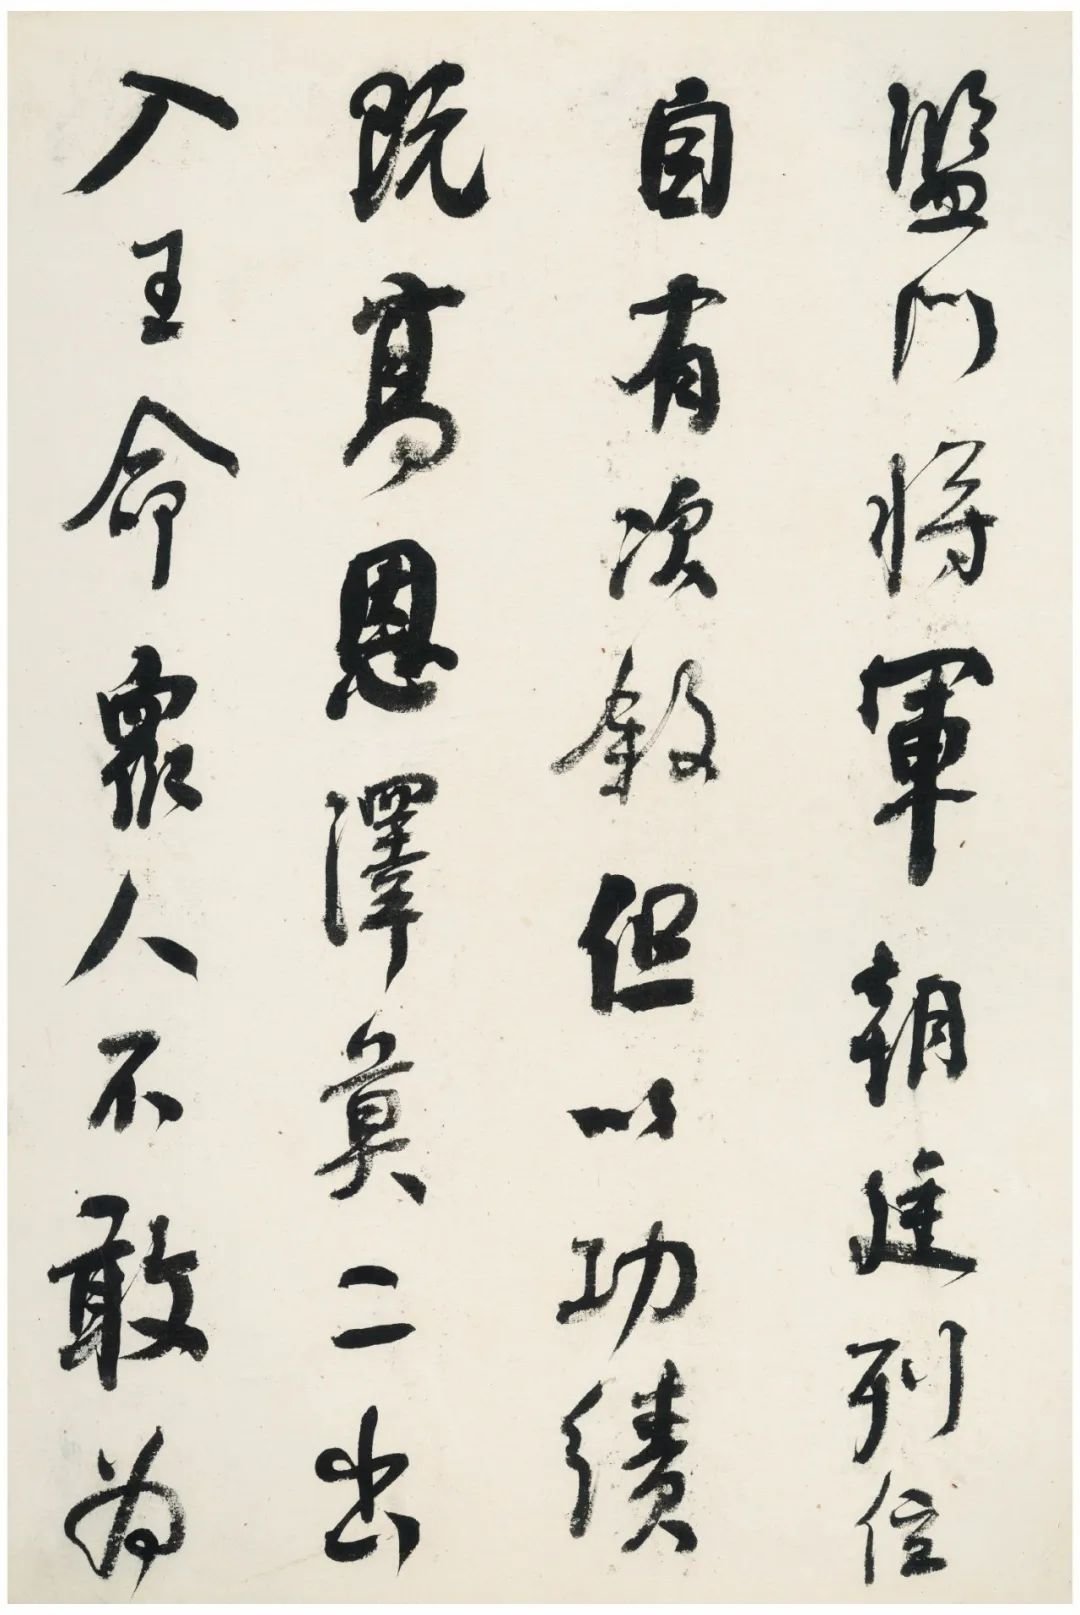 監門將軍朝廷列位
自有次敘但以功績
既高恩澤莫二出
入王命眾人不敢為